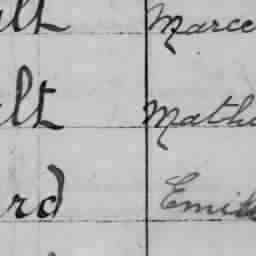 ult Marce
ult Mathi
rd Emile